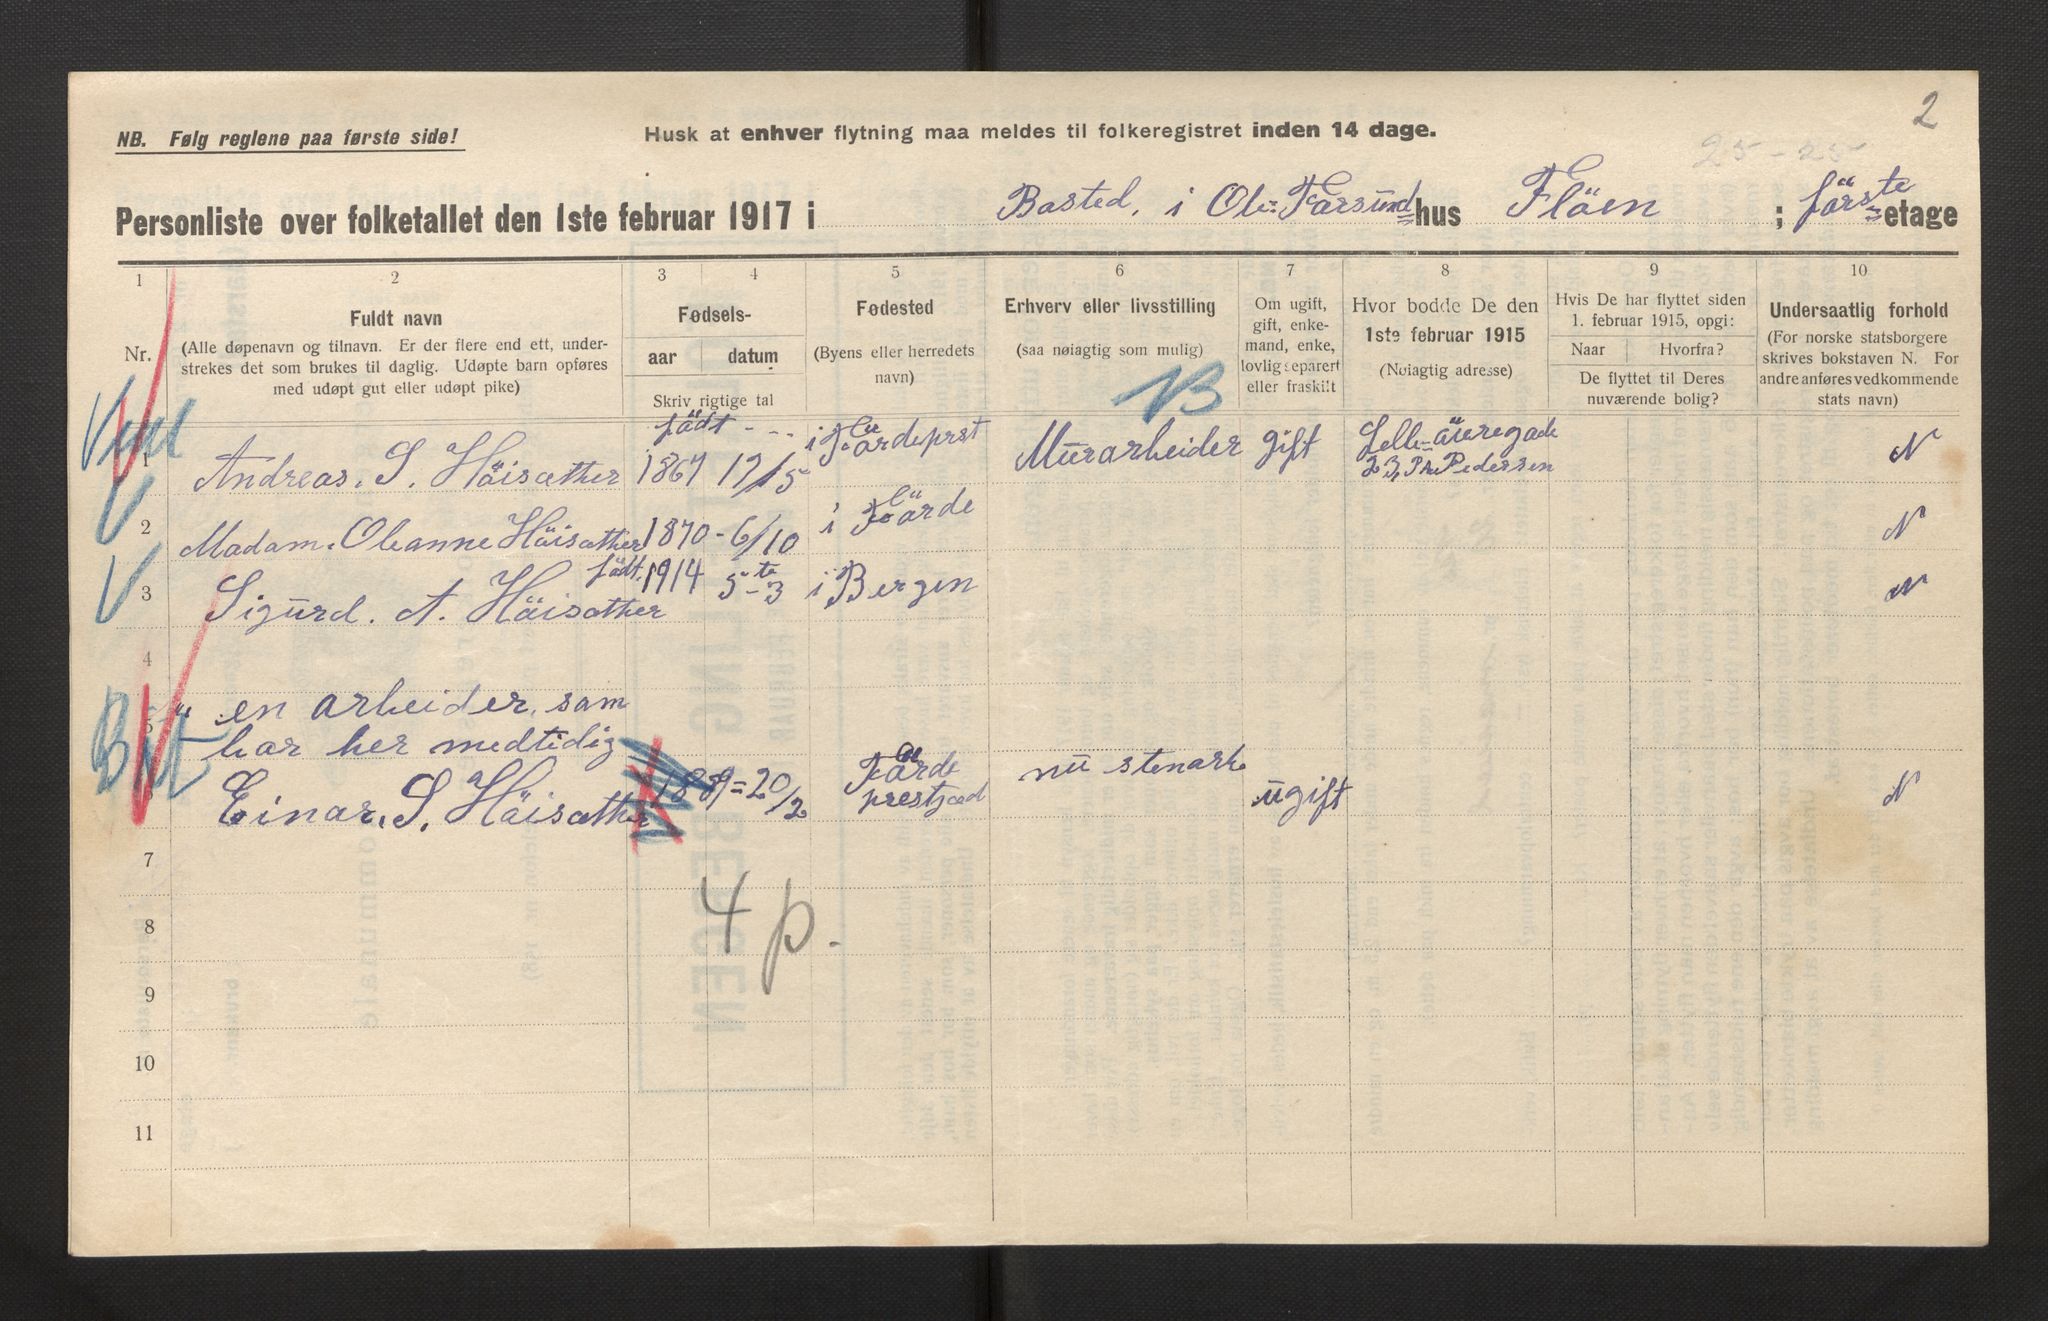 2
NB. Følg reglene paa første side!
Husk at enhver flytning maa meldes til folkeregistret inden 14 dage.
25-25
Personliste over folketallet den 1ste februar 1917 i Bosted, i Ole Farsund hus Fløen ; förste etage
1 2 3 4 5 6 7 8 9 10
Nr.
Fuldt navn
(Alle døpenavn og tilnavn. Er der flere end ett, under-
strekes det som brukes til daglig. Udøpte barn opføres
med udøpt gut eller udøpt pike)
Fødsels-
aar datum
Skriv rigtige tal
Fødested
(Byens eller herredets
navn)
Erhverv eller livsstilling
(saa nøiagtig som mulig)
Om ugift,
gift, enke-
mand, enke,
lovlig separert
eller fraskilt
Hvor bodde De den
1ste februar 1915
(Nøiagtig adresse)
Hvis De har flyttet siden
1. februar 1915, opgi:
Naar Hvorfra?
De flyttet til Deres
nuværende bolig?
Undersaatlig forhold
(For norske statsborgere
skrives bokstaven N. For
andre anføres vedkommende
stats navn)
B
födt - - i Fördeprst
1 Andreas. S. Höisæther 1867 17/5 Mürarbeider gift Lille-äüregade N
23, Pedersen
2 Madam. Oleanne Höisæther 1870 - 6/10 i Förde N
3 Sigürd. A. Höisæther födt. 1914 5te-3 i Bergen N
4
5 " en arbeider, som
bor her medtidig
Einar. S. Höisæther 1889=20/2 Förde prestgjæd nü stenarb ügift N
7
4 p.
8
9
10
11